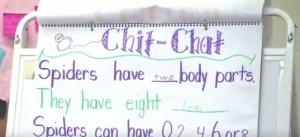 Chit-Chat
Spiders have two body parts.
They have eight legs.
Spiders can have 0 2 4 6 or 8